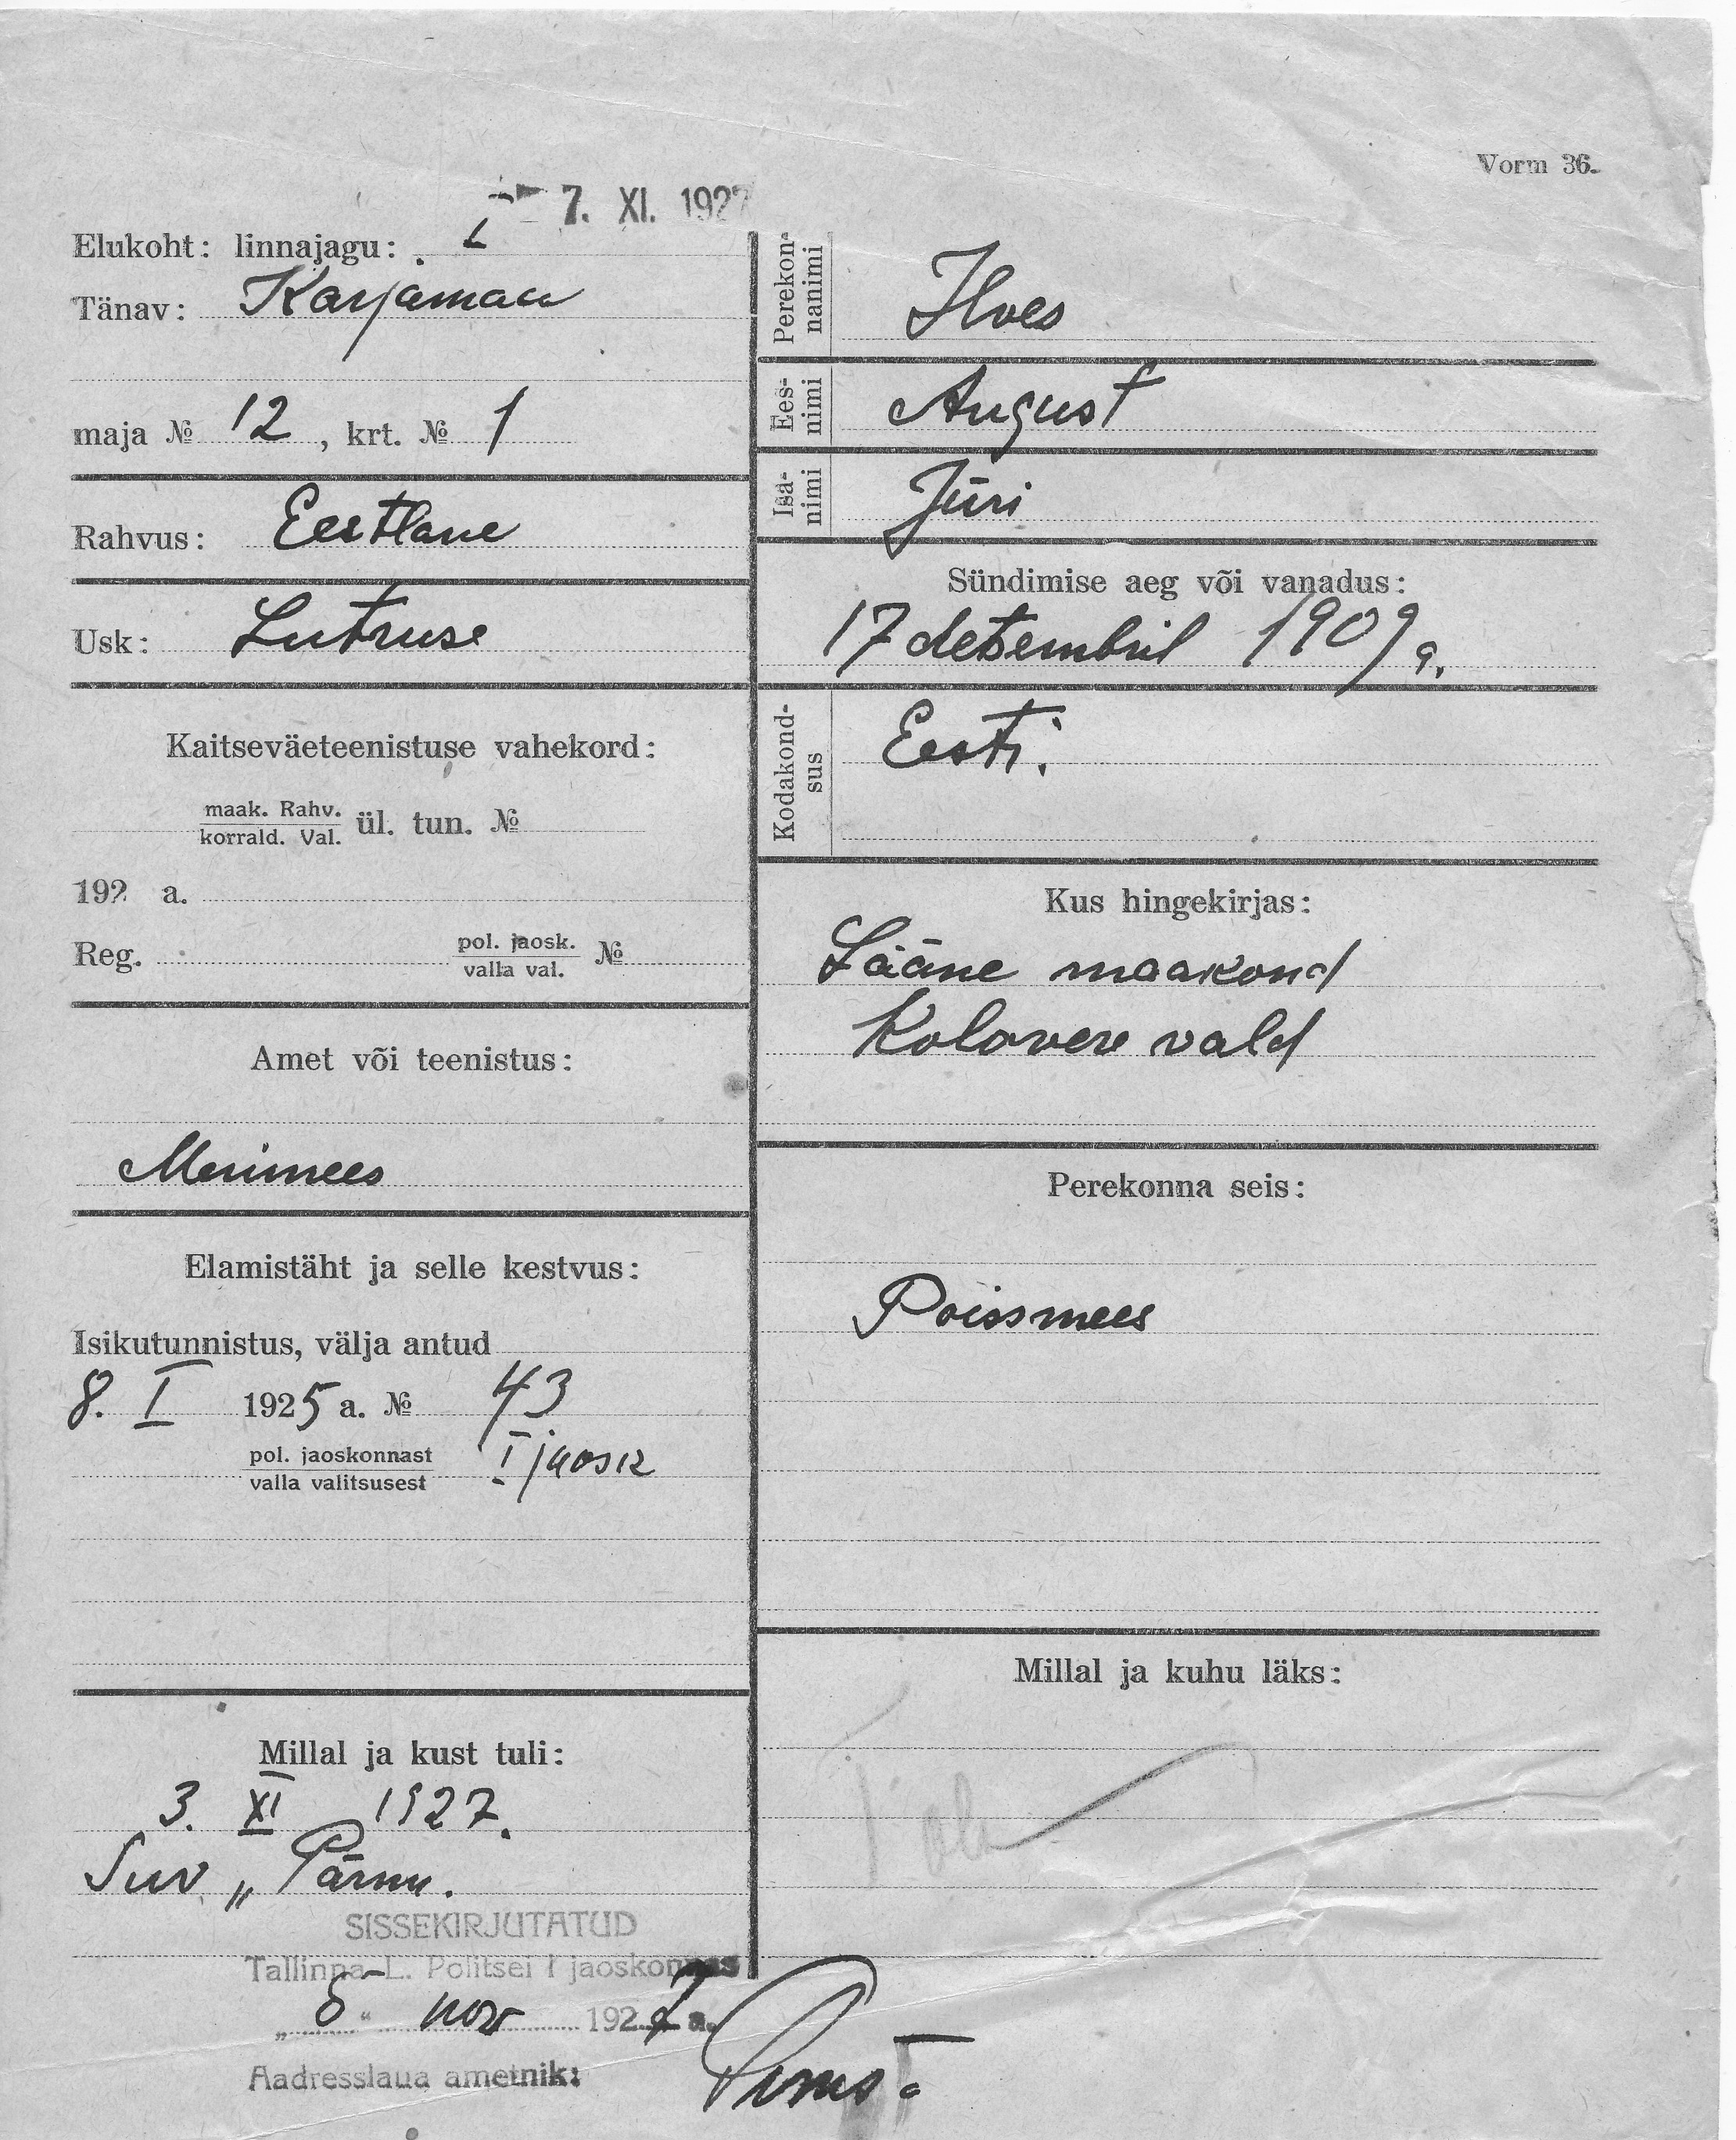 Vorm 36.
7. XI. 1927
Elukoht: linnajagu: I
Tänav: Karjamaa
maja № 12, krt. № 1
Rahvus: Eestlane
Usk: Lutruse
Kaitseväeteenistuse vahekord:
maak. Rahv.
korrald. Val. ül. tun. №
192 a.
Reg. pol. jaosk.
valla val. №
Amet või teenistus:
Merimees
Elamistäht ja selle kestvus:
Isikutunnistus, välja antud
8. I 1925 a. № 43
pol. jaoskonnast
valla valitsusest I jaosk
Millal ja kust tuli:
3. XI 1927.
Suv „Pärnu.
SISSEKIRJUTATUD
Tallinna L. Politsei I jaoskonnas
nov 1927 a.
Aadresslaua ametnik:
Perekon-
nanimi
Ilves
Ees-
nimi
August
Isa-
nimi
Jüri
Sündimise aeg või vanadus:
17 detsembril 1909 a.
Kodakond-
sus
Eesti.
Kus hingekirjas:
Lääne maakond
Kolovere vald
Perekonna seis:
Poissmees
Millal ja kuhu läks: